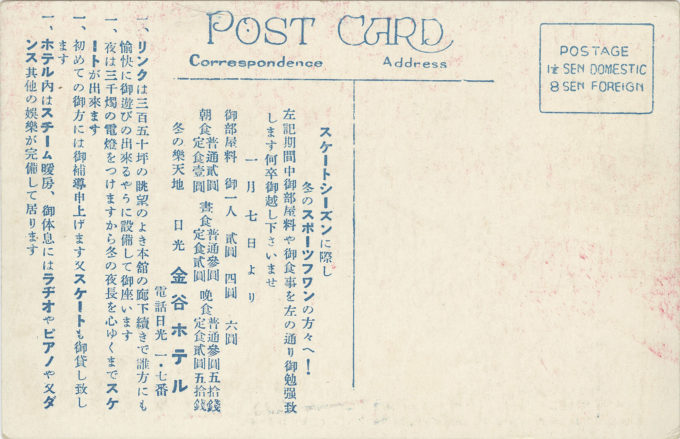 POST CARD
Correspondence
Address
POSTAGE
1½ SEN DOMESTIC
8 SEN FOREIGN
スケートシーズンに際し
冬のスポーツフワンの方々へ!
左記期間中御部屋料や御食事を左の通り御勉强致
します何卒御越し下さいませ
一月七日より
御部屋料 御一人 貳圓 四圓 六圓
朝食 普通貳圓 定食壹圓 晝食 普通參圓 定食貳圓 晩食 普通參圓五拾錢 定食貳圓五拾錢
冬の樂天地 日光 金谷ホテル
電話日光 一・七番
一、リンクは三百五十坪の眺望のよき本舘の廊下續きで誰方にも
愉快に御遊びの出來るやうに設備して御座います
一、夜は三千燭の電燈をつけますから冬の夜長を心ゆくまでスケ
ートが出來ます
一、初めての御方には御補導申上げます又スケートも御貸し致し
ます
一、ホテル內はスチーム暖房、御休息にはラヂオやピアノや又ダ
ンス其他の娛樂が完備して居ります